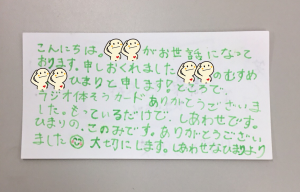 こんにちは。がお世話になって
おります。申しおくれましたのむすめ
ひまりと申します?ところで、
ラジオ体そうカード、ありがとうございま
した。もっているだけで、しあわせです。
ひまりの、このみです。ありがとうござい
ました 大切にします。しあわせなひまりより